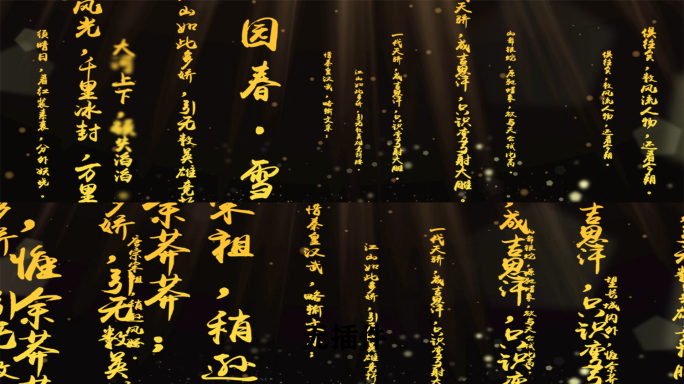 须晴日，看红装素裹，分外妖娆。
风光，千里冰封，万里
大河上下，顿失滔滔
山如此多娇，引无数英雄竞
园春·雪
惜秦皇汉武，略输文采，
江山如此多娇，引无数英雄竞折腰
一代天骄，成吉思汗，只识弯弓射大雕
天骄，成吉思汗，只识弯弓射大雕
山舞银蛇，原驰蜡象，欲与天公试比高
俱往矣，数风流人物，还看今朝。
俱往矣，数风流人物，还看今朝。
，惟余莽
娇，引无数英
唐宗宋祖，稍逊风骚。
余莽莽；
宋祖，稍逊
惜秦皇汉武，略输文采，
江山如此多娇，引无数英雄
一代天骄，成吉思汗，只识弯弓射大
成吉思汗，只识
山舞银蛇，原驰蜡象，欲与天公试比高
吉思汗，只识弯弓
望长城内外，惟余莽